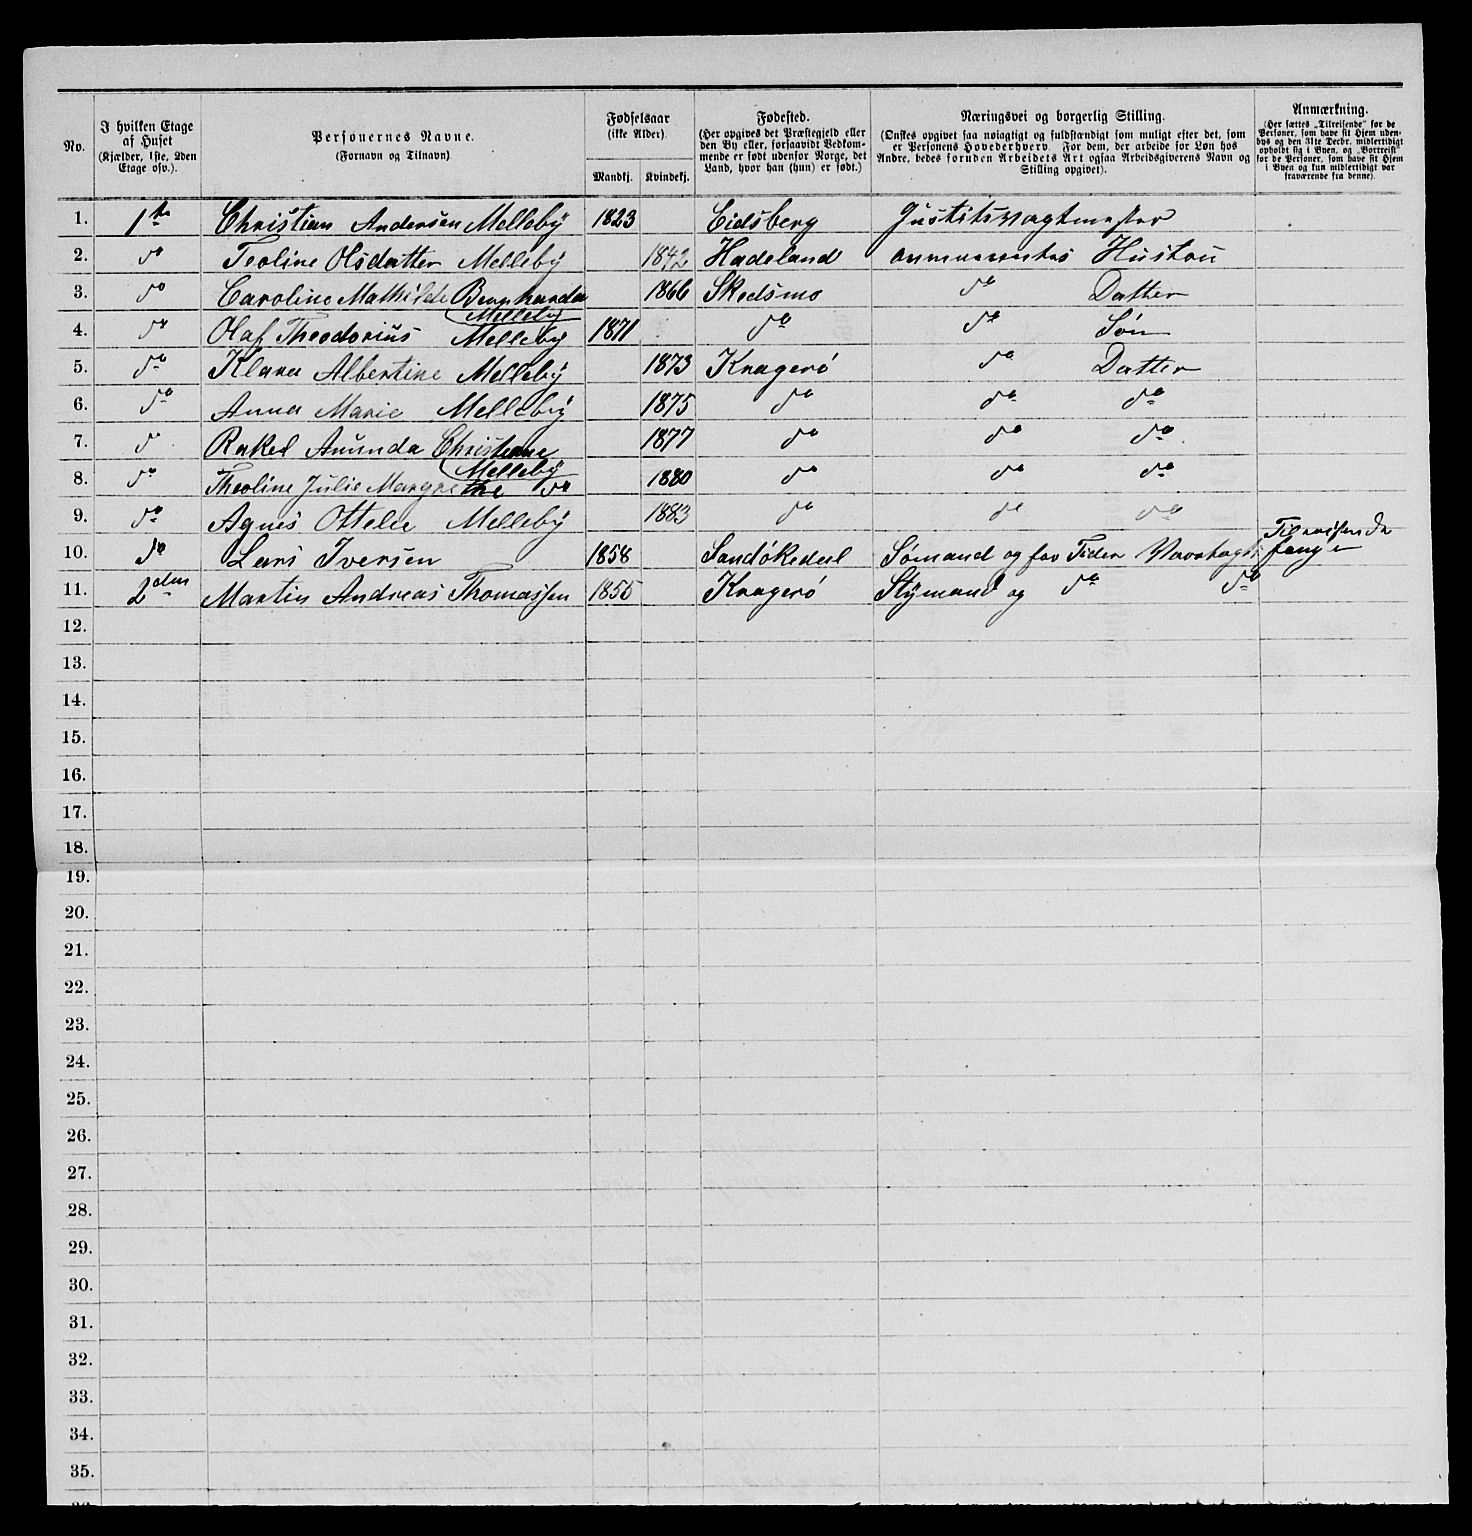 No.
I hvilken Etage
af Huset
(Kjælder, 1ste, 2den
Etage osv.).
Personernes Navne.
(Fornavn og Tilnavn)
Fødselsaar
(ikke Alder).
Mandkj. Kvindekj.
Fødested.
(Her opgives det Præstegjeld eller
den By eller, forsaavidt Vedkom-
mende er født udenfor Norge, det
Land, hvor han (hun) er født.)
Næringsvei og borgerlig Stilling.
(Ønskes opgivet saa nøiagtigt og fuldstændigt som muligt efter det, som
er Personens Hovederhverv. For dem, der arbeide for Løn hos
Andre, bedes foruden Arbeidets Art ogsaa Arbeidsgiverens Navn og
Stilling opgivet).
Anmærkning.
(Her sættes „Tilreisende“ for de
Personer, som have sit Hjem uden-
bys og den 31te Decbr. midlertidigt
opholdt sig i Byen, og „Bortreist“
for de Personer, som have sit Hjem
i Byen og kun midlertidigt var
fraværende fra denne).
1. 1ste Christian Andersen Melleby 1823 Eidsberg Justitsvagtmester
2. do Teoline Olsdatter Melleby 1842 Hadeland Hustru
3. do Caroline Mathilde Bernharda 1866 Skedsmo do Datter
Melleby
4. do Olaf Theodorius Melleby 1871 do do Søn
5. do Klara Albertine Melleby 1873 Kragerø do Datter
6. do Anna Marie Melleby 1875 do do do
7. do Rakel Amunda Christiane 1877 do do do
Melleby
8. do Theoline Julie Margrethe do 1880 do do do
9. do Agnes Ottelie Melleby 1883 do do do
Tilreisende
10. do Lars Iversen 1858 Sandøkedal Sømand og for Tiden Varetægts fange
11. 2den Martin Andreas Thomassen 1855 Kragerø Stymand og do do
12.
13.
14.
15.
16.
17.
18.
19.
20.
21.
22.
23.
24.
25.
26.
27.
28.
29.
30.
31.
32.
33.
34.
35.